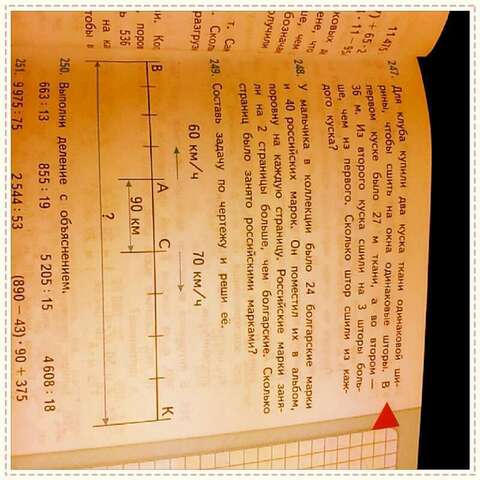 11 475
) + 65 · 2
· 11 – 95
ковых д
ене, что
ше, чем
обознача
олучили
т. Са
Скол
разгруз
поров
536
на ка
тобы в
247. Для клуба купили два куска ткани одинаковой ши-
рины, чтобы сшить на окна одинаковые шторы. В
первом куске было 27 м ткани, а во втором —
36 м. Из второго куска сшили на 3 шторы боль-
ше, чем из первого. Сколько штор сшили из каж-
дого куска?
248. У мальчика в коллекции было 24 болгарские марки
и 40 российских марок. Он поместил их в альбом,
поровну на каждую страницу. Российские марки заня-
ли на 2 страницы больше, чем болгарские. Сколько
страниц было занято российскими марками?
249. Составь задачу по чертежу и реши её.
60 км/ч 70 км/ч
В А С К
90 км
?
250. Выполни деление с объяснением.
663 : 13 855 : 19 5 205 : 15 4 608 : 18
251. 9 975 : 75 2 544 : 53 (890 – 43) · 90 + 375